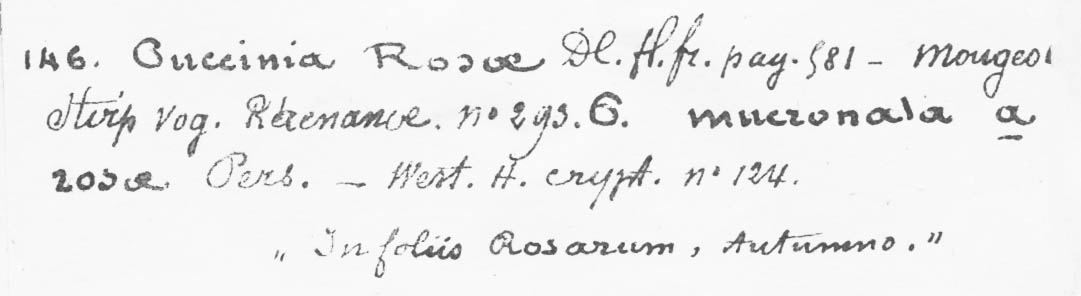 146. Puccinia Rosæ Dl. fl. fr. pag. 581 – Mougeot
Stirp Vog. Rhenanæ. nº 293. P. mucronata a
rosæ Pers. – West. H. crypt. nº 124.
„ In foliis Rosarum, Autumno.”